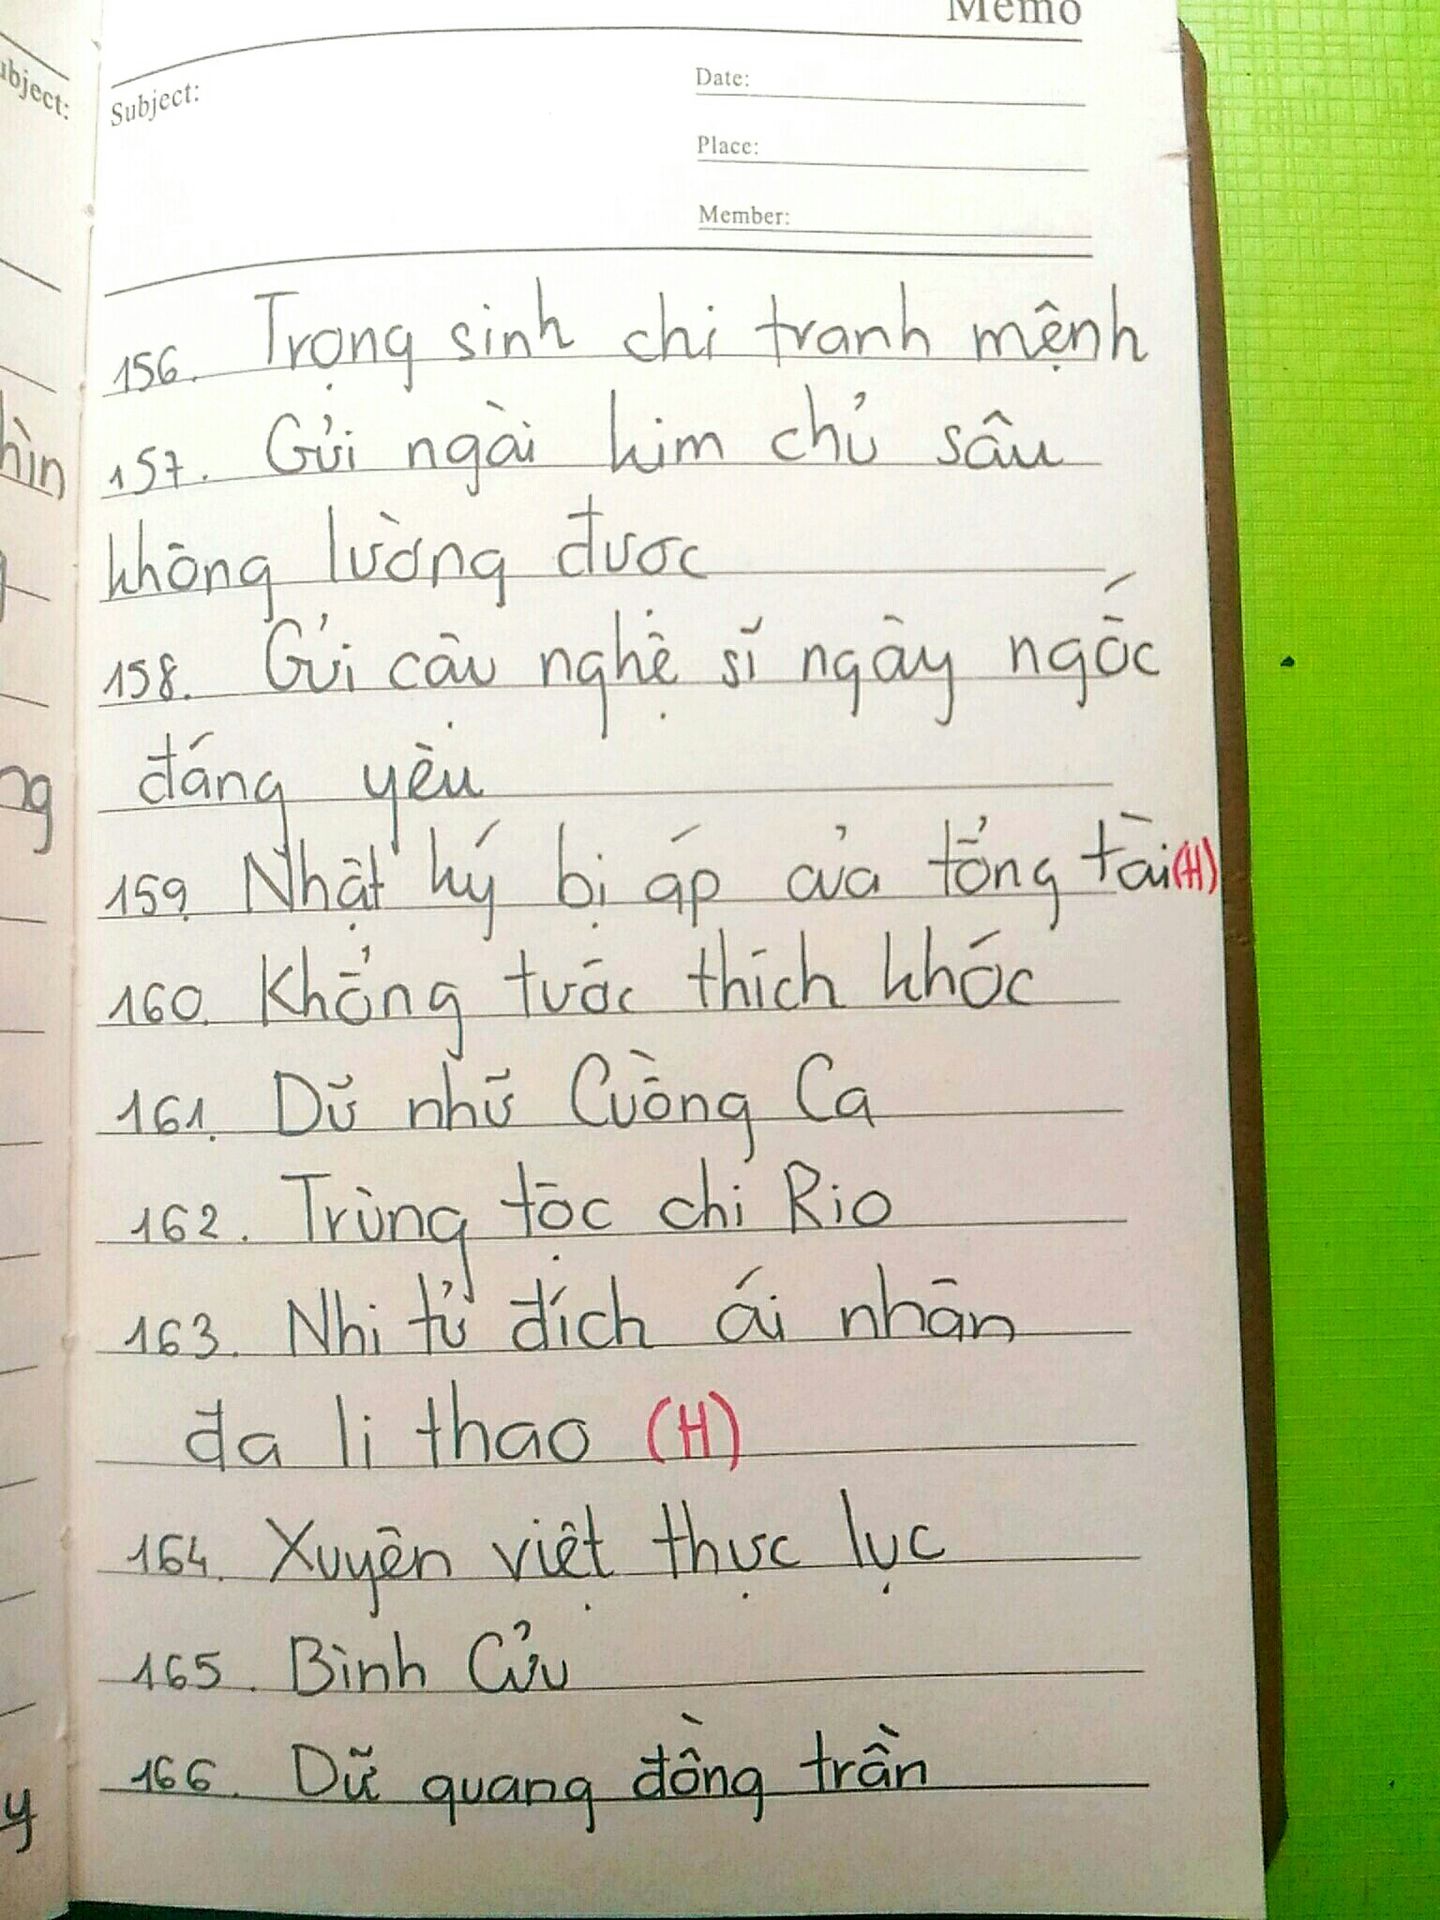 Memo
Subject:
Date:
Place:
Member:
156. Trọng sinh chi tranh mệnh
157. Gửi ngài kim chủ sâu
không lường được
158. Gửi cậu nghệ sĩ ngây ngốc
đáng yêu
159. Nhật ký bị áp của tổng tài (H)
160. Khổng tước thích khóc
161. Dữ nhữ Cuồng Ca
162. Trùng tộc chi Rio
163. Nhi tử đích ái nhân
đa li thao (H)
164. Xuyên việt thực lục
165. Bình Cửu
166. Dữ quang đồng trần
ubject:
hìn
ng
y